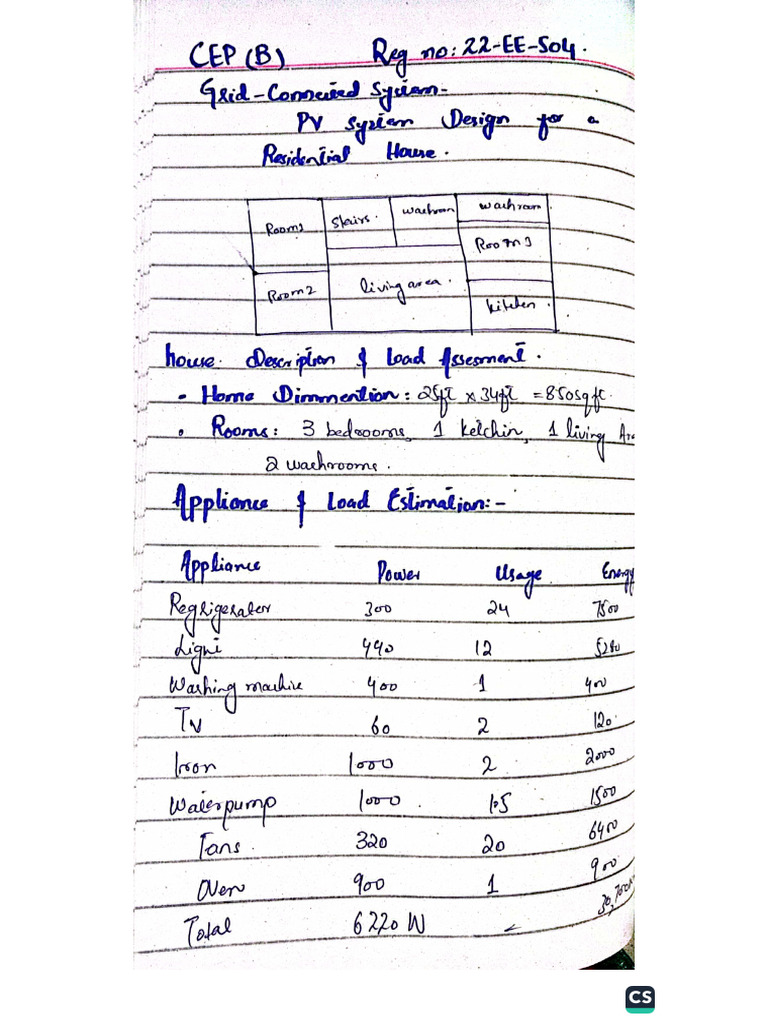 CEP (B) Reg no: 22-EE-504.
Grid-Connected System-
PV System Design for a
Residential House.
Room1 Stairs. washroom washroom
Room3
Room2 living area.
kitchen.
house Description & Load Assesment.
- Home Dimmention: 25ft x 34ft = 850sqft.
• Rooms: 3 bedrooms, 1 ketchin, 1 living Are
2 washrooms.
Appliance & Load Estimation:-
Appliance Power Usage Energy
Regrigerator 300 24 7500
Light 440 12 5280
Washing machine 400 1 400
TV 60 2 120.
Iron 1000 2 2000
Waterpump 1000. 1.5 1500
Fans. 320 20 6400
Oven 900 1 900
Total 6220 W
CS